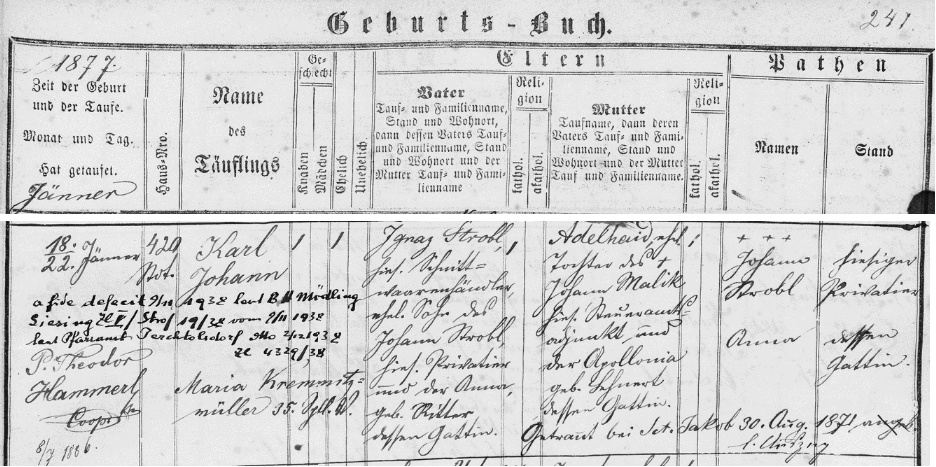 Geburts-Buch.
241
1877.
Zeit der Geburt
und der Taufe.
Monat und Tag.
Hat getaufet.
Jänner
Haus-Nro.
Name
des
Täuflings
Ge-
schlecht
Knaben
Mädchen
Ehelich
Unehelich
Eltern
Vater
Tauf- und Familienname,
Stand und Wohnort,
dann dessen Vaters Tauf-
und Familienname, Stand
und Wohnort und der
Mutter Tauf- und Fami-
lienname
Reli-
gion
kathol.
akathol.
Mutter
Taufname, dann deren
Vaters Tauf- und Fami-
lienname, Stand und
Wohnort und der Mutter
Tauf und Familienname.
Reli-
gion
kathol.
akathol.
Pathen
Namen
Stand
18.
22. Jänner
420
Karl
Johann
Ignaz Strobl,
hies. Schnitt-
waarenhändler,
ehel. Sohn des
Johann Strobl,
hies. Privatier
und der Anna,
geb. Ritter
dessen Gattin.
Adelhaid, ehel.
Tochter des +
Johann Malik
hies. Steueramts-
adjunkt und
der Apollonia
geb. Lehnert
dessen Gattin.
+ + +
Johann
Strobl
Anna
hiesiger
Privatier
dessen
Gattin.
a fide defecit 9/11 1938 laut B.H. Mödling
Liesing II/ Stro/ 19/38 vom 9/11 1938
laut Pfarramt Perchtoldsdorf dto 2/12 1938
Zl 4329/38
P. Theodor
Hammerl
Coopr
8/7 1886.
Maria Kremmitz-
müller 35.
Getraut bei Sct. Jakob 30. Aug. 1871
l. Auszug